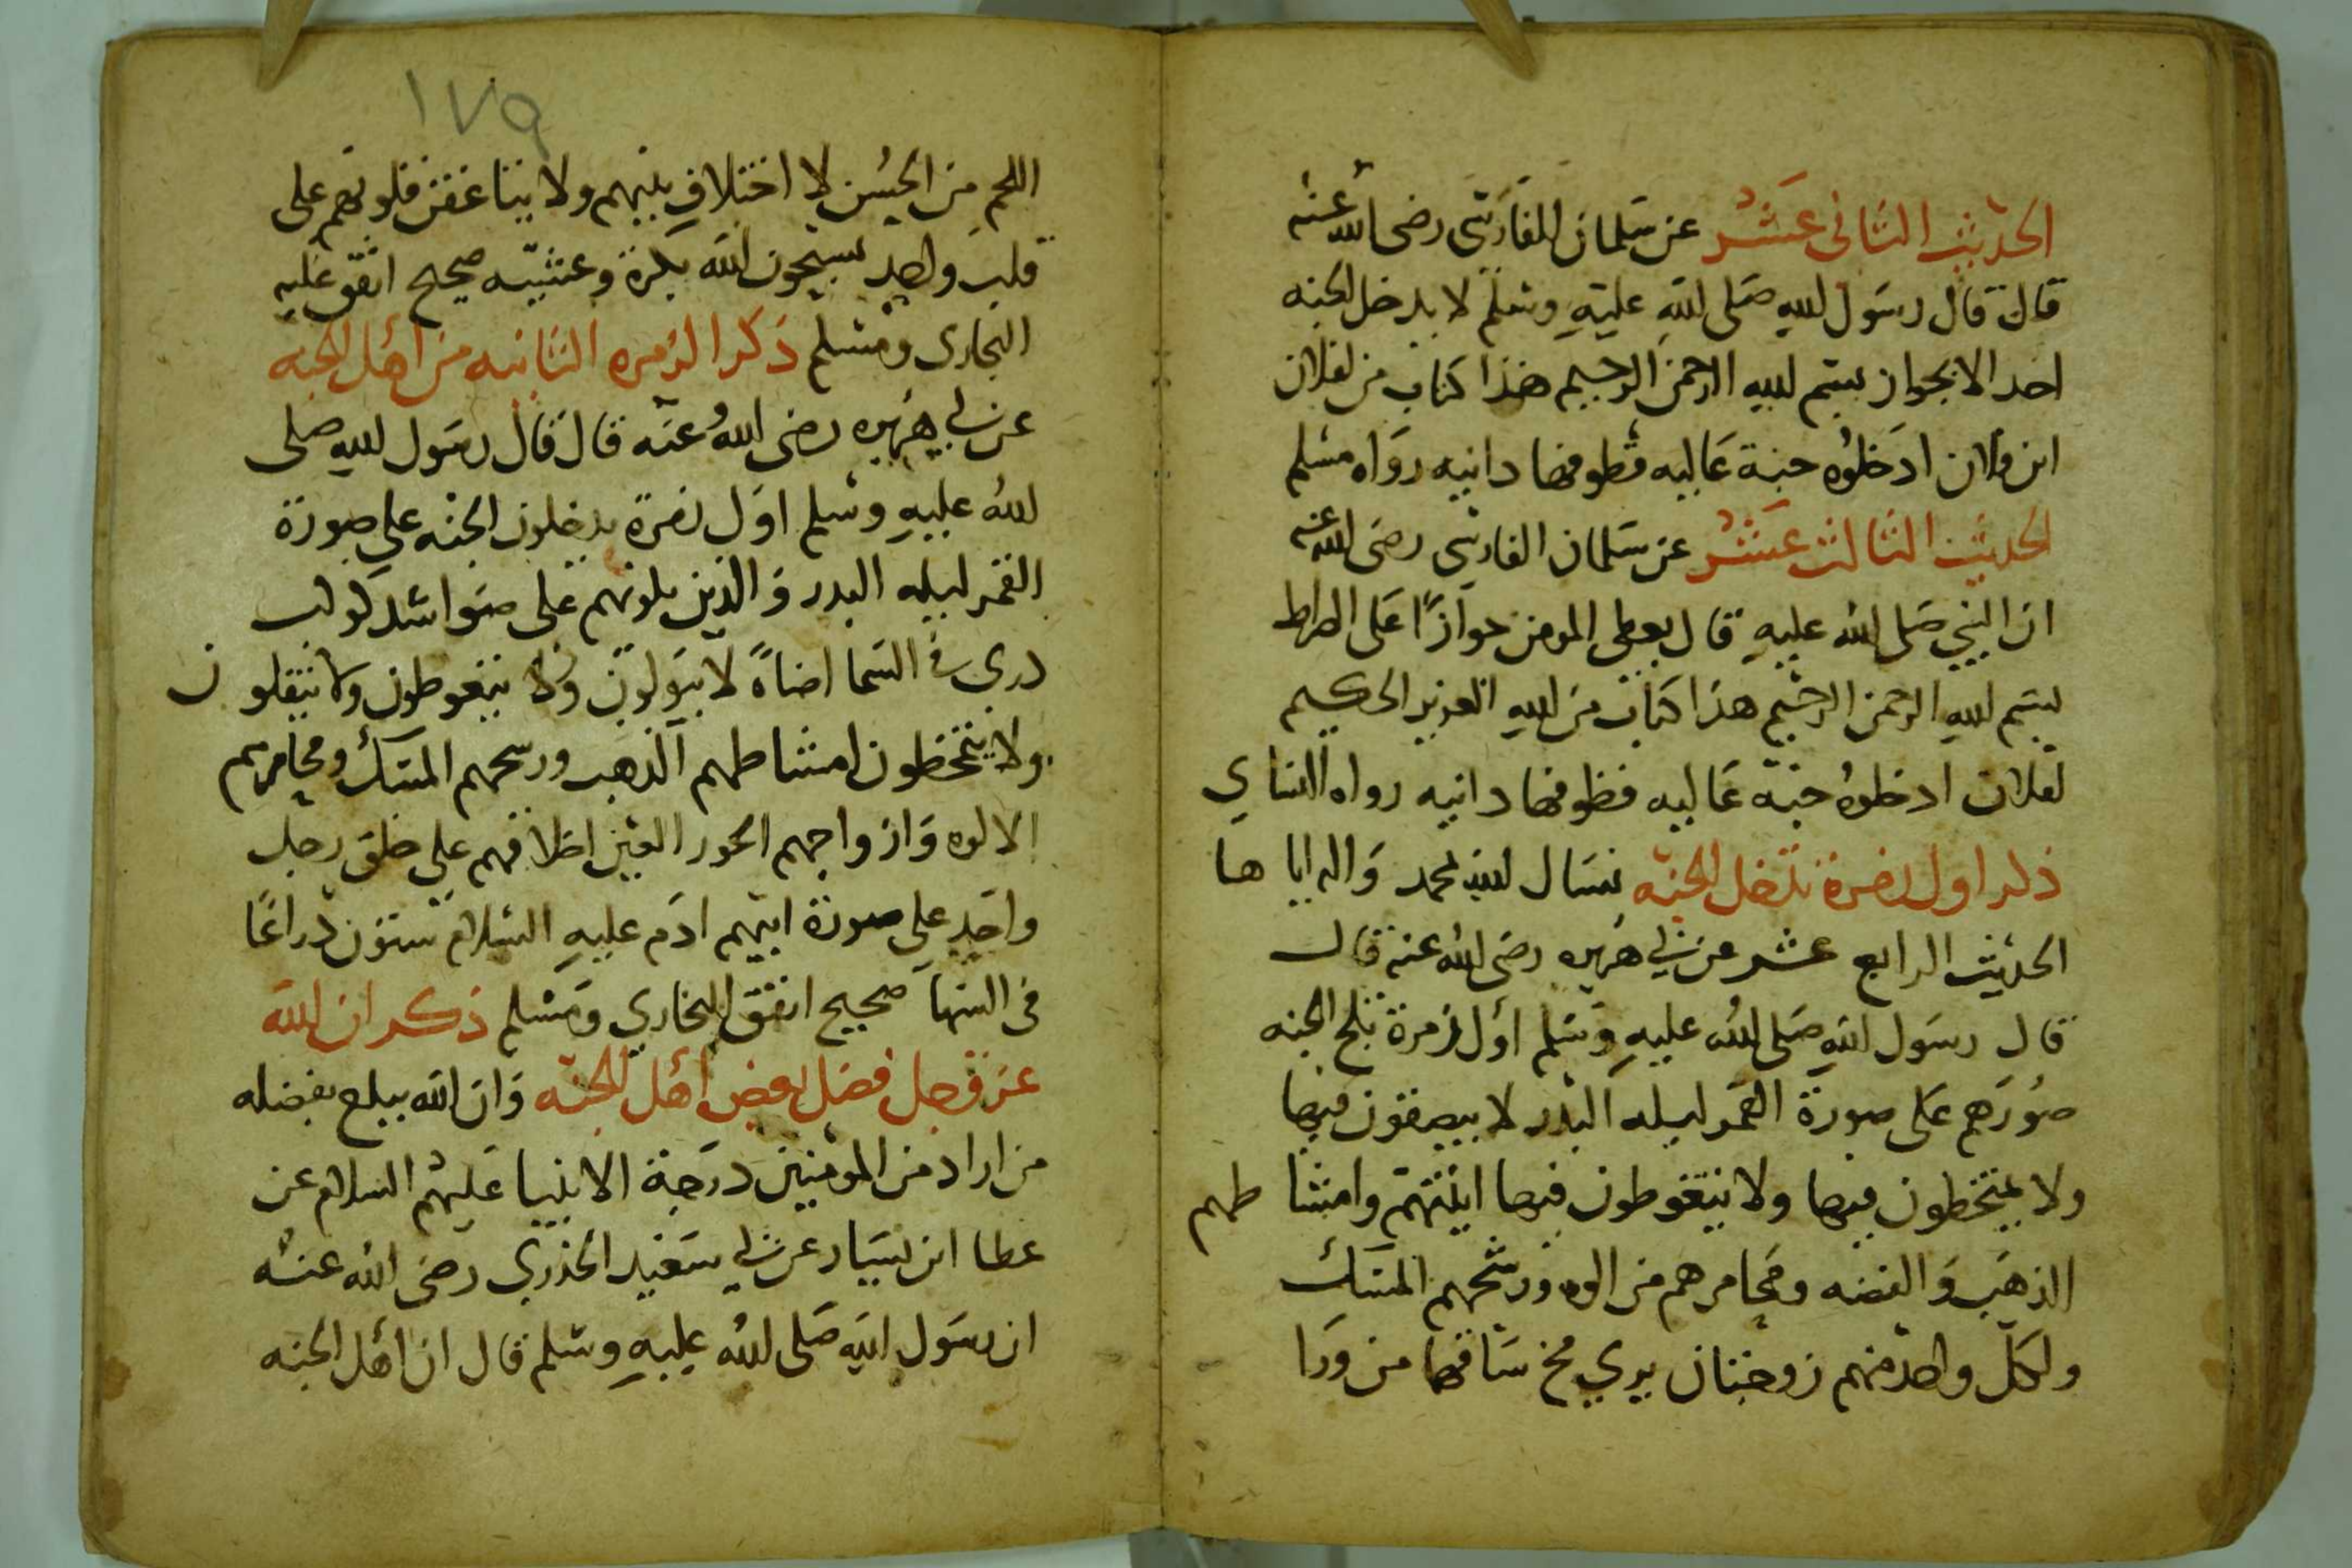 الحديث الثانى عشر عن سلمان الفارسى رضى الله عنه
قال قال رسول الله صلى الله عليه وسلم لا يدخل الجنه
احد الا بجواز بسم الله الرحمن الرحيم هذا كتاب من لفلان
ابن فلان ادخلوه جنة عاليه قطوفها دانيه رواه مسلم
الحديث الثالث عشر عن سلمان الفارسى رضى الله عنه
ان النبي صلى الله عليه قال يعطى المومن جوازًا على الصراط
بسم الله الرحمن الرحيم هذا كتاب من الله العزيز الحكيم
لفلان ادخلوه جنة عاليه قطوفها دانيه رواه النساي
ذكر اول زمرة تدخل الجنه نسال الله محمد واله اياها
الحديث الرابع عشر عن ابي هريره رضى الله عنه قال
قال رسول الله صلى الله عليه وسلم اول زمرة تلج الجنه
صورهم على صورة القمر ليله البدر لا يبصقون فيها
ولا يمتخطون فيها ولا يتغوطون فيها انيتهم وامشا طهم
الذهب والفضه ومجامرهم من الوه ورشحهم المسك
ولكل واحد منهم زوجتان يري مخ ساقها من ورا
١٧٩
اللحم من الحسن لا اختلاف بينهم ولا يتباغضن قلوبهم على
قلب واحد يسبحون الله بكرة وعشيه صحيح اتفق عليه
البخارى ومسلم ذكر الزمره الثانيه من اهل الجنه
عن ابي هريره رضى الله عنه قال قال رسول الله صلى
الله عليه وسلم اول زمرة يدخلون الجنه على صورة
القمر ليله البدر والذين يلونهم على ضوا اشد كوكب
دري في السما اضاةً لا يبولون ولا يتغوطون ولا يتفلون
ولا يتمخطون امشاطهم الذهب ورشحهم المسك ومجامرهم
الالوه وازواجهم الحور العين اخلاقهم على خلق رجل
واحد على صورة ابيهم ادم عليه السلام ستون ذراعًا
فى السما صحيح اتفق البخاري ومسلم ذكر ان الله
عز وجل فضل بعض اهل الجنه وان الله يبلغ بفضله
من اراد من المومنين درجة الانبيا عليهم السلام عن
عطا ابن يسار عن ابي سعيد الخذري رضى الله عنه
ان رسول الله صلى الله عليه وسلم قال ان اهل الجنه